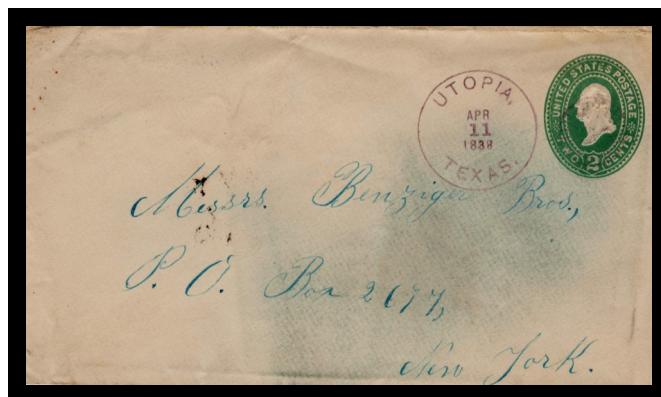 UTOPIA,
APR
11
1838
TEXAS.
UNITED STATES POSTAGE
TWO 2 CENTS
Messrs. Benziger Bros.,
P. O. Box 2677,
New York.